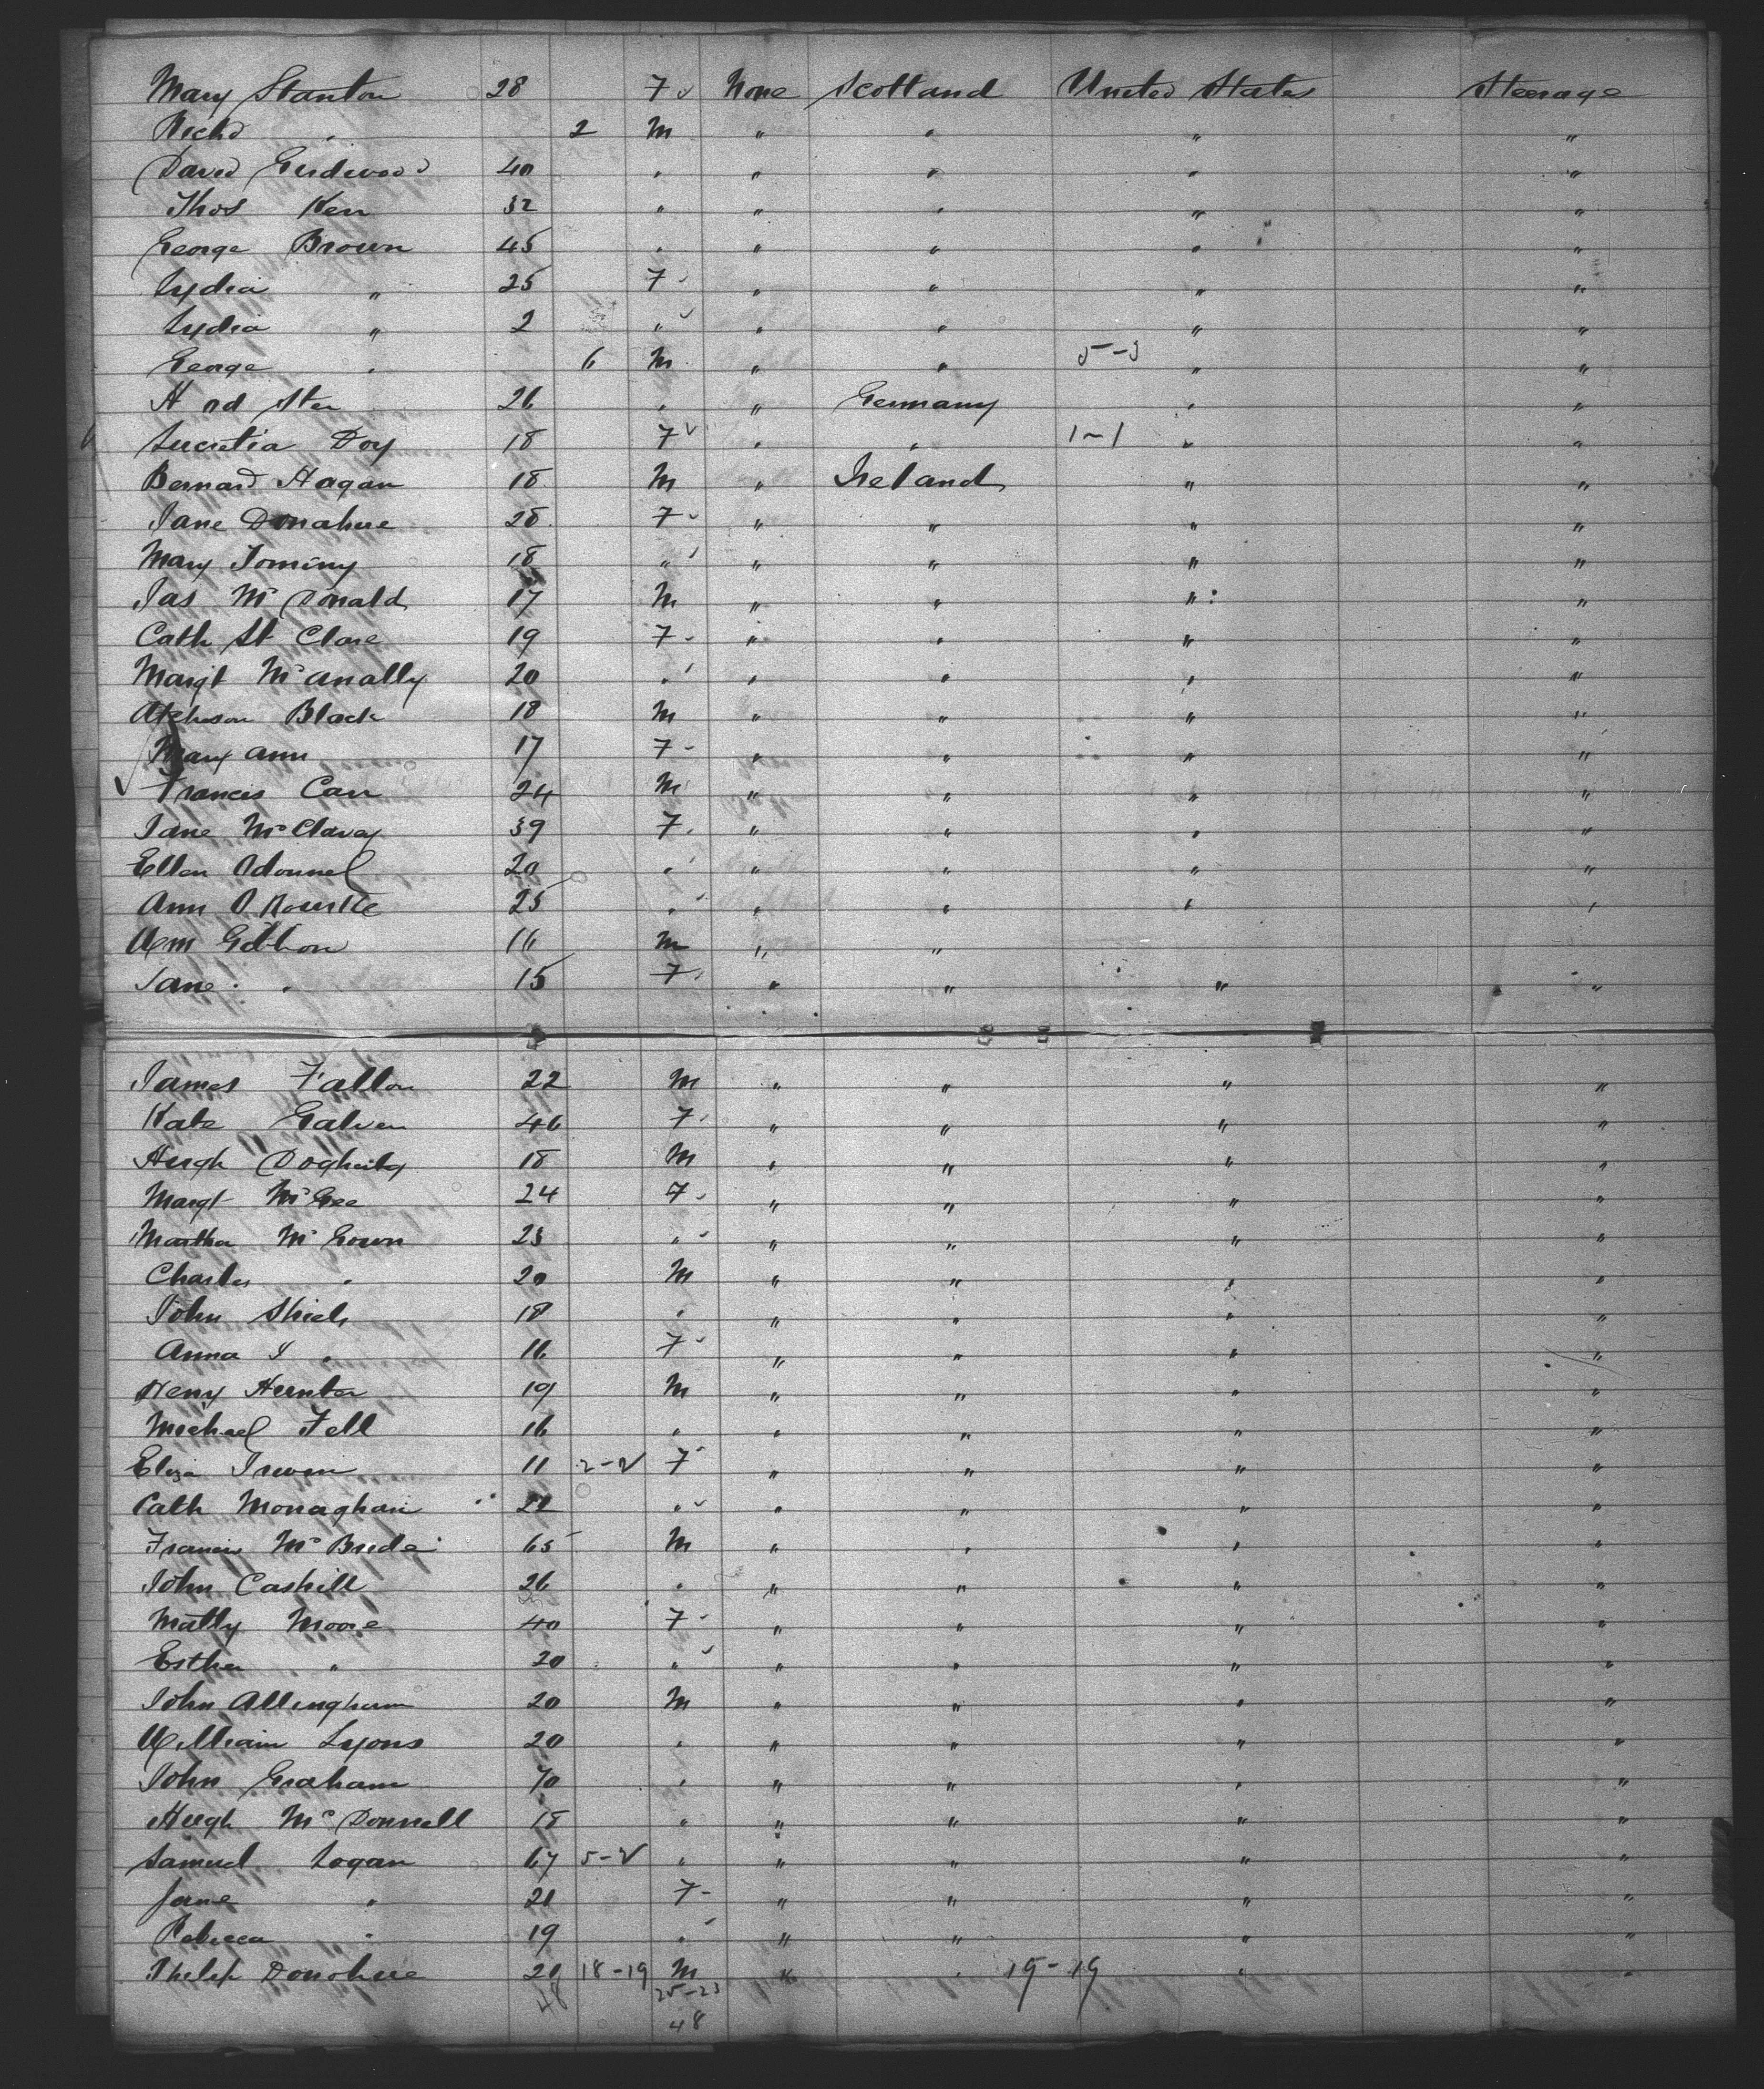 Mary Stanton 28 7 None Scotland United States Steerage
Richd " 2 M " " " "
David Girdwood 40 " " " " "
Thos Kerr 32 " " " " "
George Brown 45 " " " " "
Lydia " 25 7 " " " "
Lydia " 2 " " " " "
George " 6 M " " 5-3 " "
26 " " Germany " "
Lucretia Doy 18 7 " " 1-1 " "
Bernard Hagan 18 M " Ireland " "
Jane Donahue 28 7 " " " "
Mary Tominy 18 " " " " "
Jas McDonald 17 M " " " "
Cath St Clare 19 7 " " " "
Margt McAnally 20 " " " " "
Atchison Black 18 M " " " "
Mary Ann 17 7 " " " "
Francis Carr 24 M " " " "
Jane McClavey 39 7 " " " "
Ellen Odonnel 20 " " " " "
Ann O Rourke 25 " " " " "
Wm 16 M " "
Jane " 15 7 " " " "
James Fallon 22 M " " " "
Kate Galven 46 7 " " " "
Hugh Dogherty 18 M " " " "
Margt McGee 24 7 " " " "
Martha McGown 23 " " " " "
Charles " 20 M " " " "
John Shiels 18 " " " " "
Anna J " 16 7 " " " "
Henry Hunter 19 M " " " "
Michael Fell 16 " " " " "
Eliza Irwin 11 2-2 7 " " " "
Cath Monaghan 21 " " " " "
Francis McBride 65 M " " " "
John Cashill 26 " " " " "
Matty Moore 40 7 " " " "
Esther " 20 " " " " "
John Allingham 20 M " " " "
William Lyons 20 " " " " "
John Graham 70 " " " " "
Hugh McDonnell 18 " " " " "
Samuel Logan 67 5-2 " " " " "
Jane " 21 7 " " " "
Rebecca " 19 " " " " "
Philip Donohue 20 18-19 M " " 19-19 " "
48 25-23
48